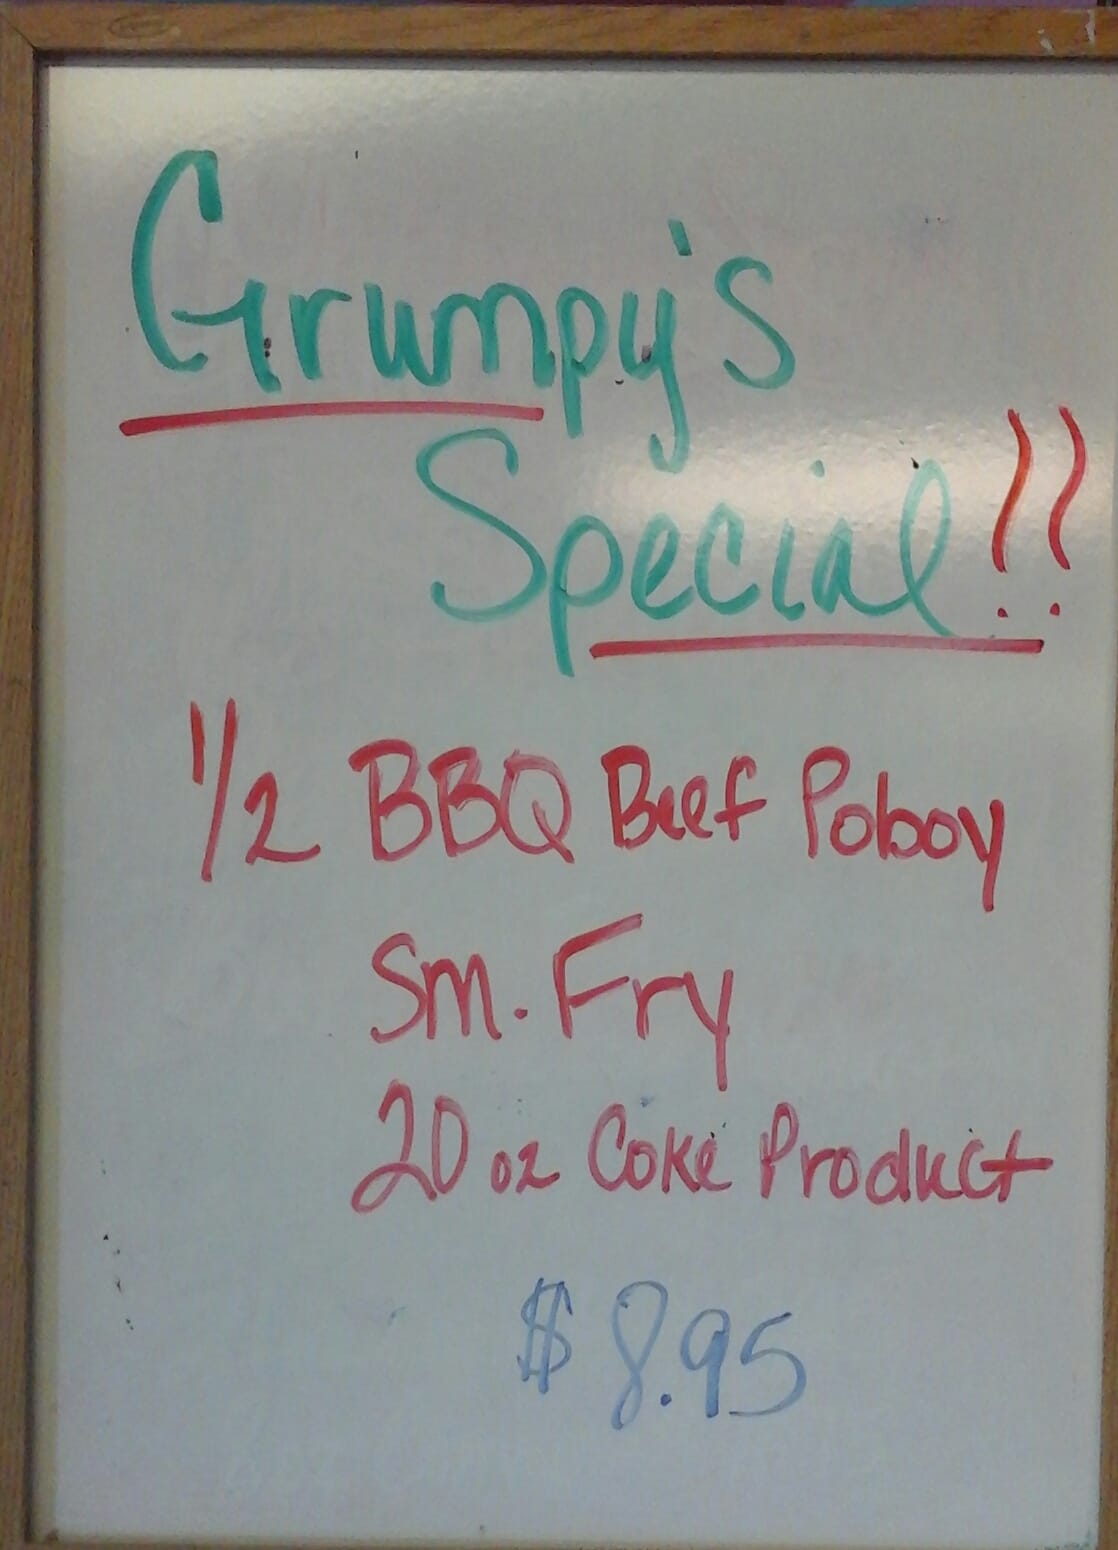 Grumpy's
Special!!
1/2 BBQ Beef Poboy
Sm. Fry
20 oz Coke Product
$8.95